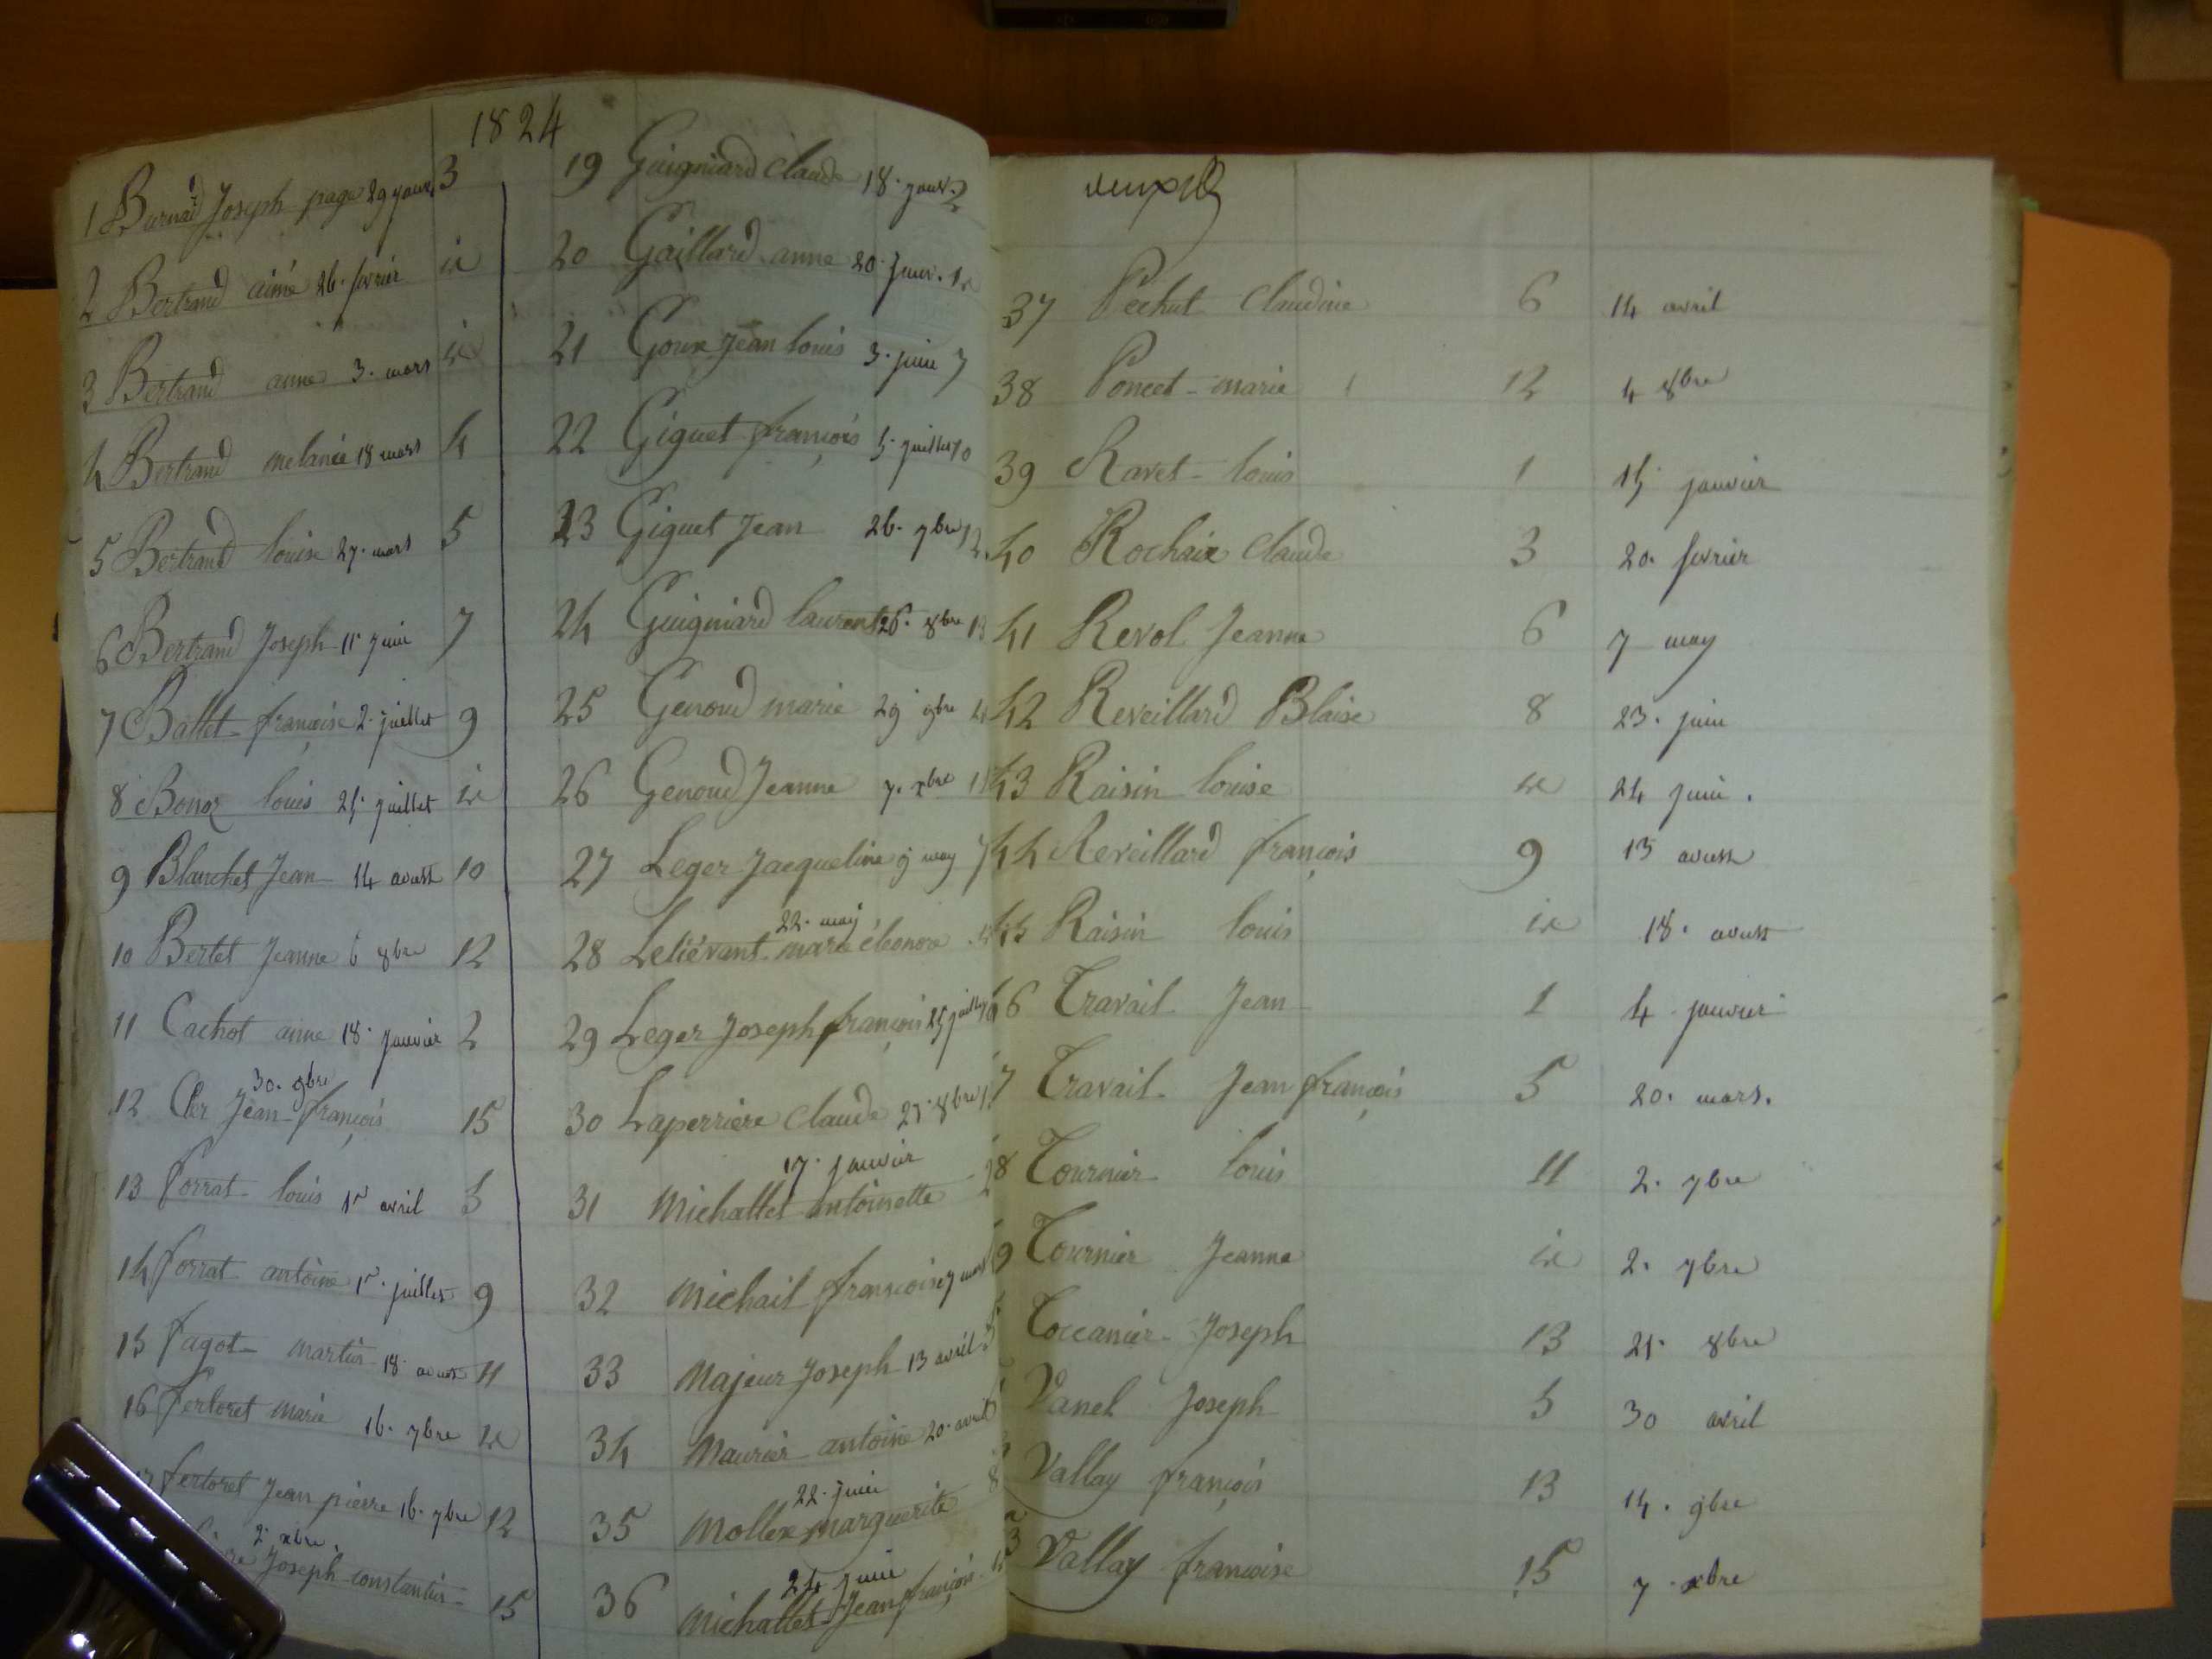 1824
1 Burnad Joseph page 29 janv. 3
2 Bertrand aimé 26. fevrier id
3 Bertrand anne 3. mars id
4 Bertrand melanie 18 mars 4
5 Bertrand louise 27. mars 5
6 Bertrand Joseph 11 Juin 7
7 Ballet françoise 2. juillet 9
8 Bonoz louis 25. juillet id
9 Blanchet Jean 14 aoust 10
10 Bertet Jeanne 6 8bre 12
11 Cachot anne 18. janvier 2
30. 9bre
12 Cler Jean françois 15
13 forrat louis 1r avril 5
14 forrat antoine 1r. juillet 9
15 fagot martin 18. aoust 11
16 fertoret marie 16. 7bre id
fertoret Jean pierre 16. 7bre 12
2. xbre.
Joseph constantin 15
19 Guigniard Claude 18. janv. 2
20 Gaillard anne 20. Janv. id
21 Goux Jean louis 3. juin 7
22 Giguet françois 5. juillet 10
23 Giguet Jean 26. 7bre 12
24 Guigniard laurent 26. 8bre 13
25 Genoud marie 29 9bre
26 Genoud Jeanne 7. xbre
27 Leger Jacqueline 9 may
22. may
28 Leliévant marie éleonore
29 Leger Joseph françois 25 juillet
30 Laperriere Claude 25. 8bre
17. janvier
31 Michallet antoinette
32 Michail françoise 7 mars
33 Majeur Joseph 13 avril
34 Maurier antoine 20. avril
22. juin
35 Mollex marguerite
24 Juin
36 Michallet Jean françois
37 Pechut Claudine 6 14 avril
38 Poncet marie 12 4 8bre
39 Ravet louis 1 15 janvier
40 Rochaix Claude 3 20. fevrier
41 Revol Jeanne 6 7 may
42 Reveillard Blaise 8 23. juin
43 Raisin louise id 24 juin.
44 Reveillard françois 9 13 aoust
45 Raisin louis id 18. aoust
46 Travail Jean 1 4. janvier
7 Travail Jean françois 5 20. mars.
8 Tournier louis 11 2. 7bre
9 Tournier Jeanne id 2. 7bre
Toccanier Joseph 13 25. 8bre
Vanel Joseph 5 30 avril
Vallay françois 13 14. 9bre
3 Vallay françoise 15 7. xbre